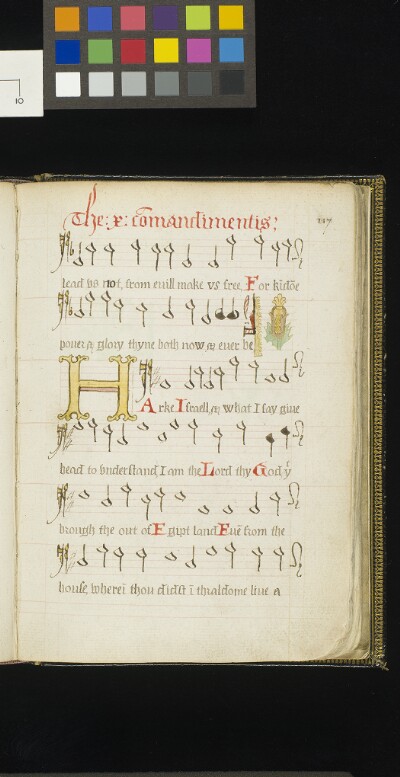 The: x: cōmandimentis:
lead vs not, from euill make vs free, For kīdōe
power & glory thyne both now & euer be
HArke Israell, & what I say giue
head to vnderstand, I am the Lord thy God, yt
brought the out of Egipt land Euē from the
house, whereī thou didst ī thraldome liue a